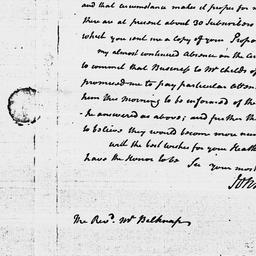 and that circumstance makes it proper for m
there are at present about 30 Subscribers
which you sent me a Copy of your Propo
my almost continued Absence on the Cir
to commit that Business to Mr Childs of
promised me to pay particular atten
him this Morning to be informed of the
he answered as above; and further th
to believe they would become more num
with the best wishes for your Health
have the Honor to be Sir Your most
John
The Revd. Mr Belknap